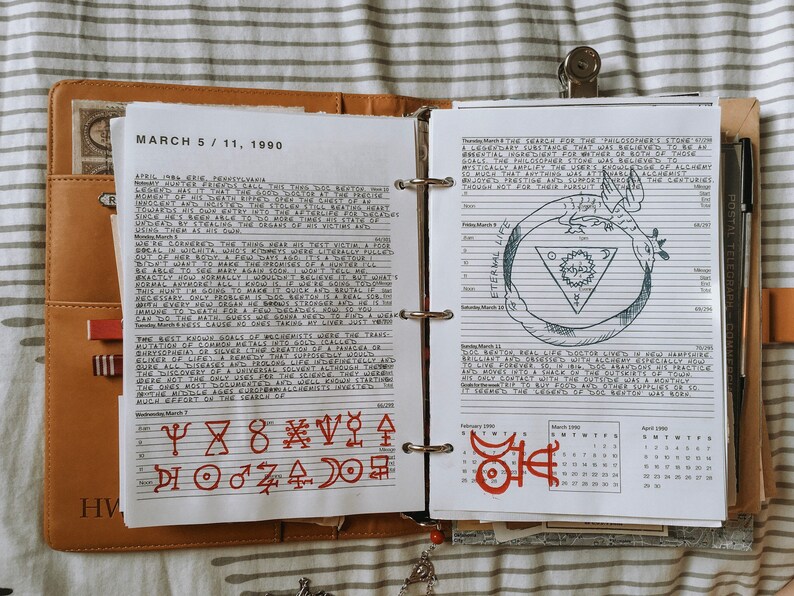 MARCH 5 / 11, 1990
APRIL 1986 ERIE, PENNSYLVANIA
Notes MY HUNTER FRIENDS CALL THIS THING DOC BENTON. Week 10
LEGEND HAS IT THAT THE GOOD DOCTOR AT THE PRECISE
MOMENT OF HIS DEATH RIPPED OPEN THE CHEST OF AN
INNOCENT AND INGESTED THE STOLEN STILL BEATING HEART
TOWARDS HIS OWN ENTRY INTO THE AFTERLIFE FOR DECADES
SINCE HE'S BEEN ABLE TO DO MORE TIMES HIS STATE OF
UNDEAD BY STEALING THE ORGANS OF HIS VICTIMS AND
USING THEM AS HIS OWN.
Monday, March 5 64/301
WE'RE CORNERED THE THING NEAR HIS TEST VICTIM, A POOR
LOCAL IN WICHITA, WHO'S KIDNEYS WERE LITERALLY PULLED
OUT OF HER BODY, A FEW DAYS AGO. IT'S A DETOUR I
DIDN'T WANT TO MAKE THE PROMISES OF A HUNTER I'LL
BE ABLE TO SEE MARY AGAIN SOON. I WON'T TELL ME
EXACTLY HOW NORMALLY I WOULDN'T BELIEVE IT BUT WHAT'S
NORMAL ANYMORE? ALL I KNOW IS, IF WE'RE GOING TO DO
THIS HUNT I'M GOING TO MAKE IT QUICK AND BRUTAL IF
NECESSARY. ONLY PROBLEM IS DOC BENTON IS A REAL SOB.
WITH EVERY NEW ORGAN HE GROWS STRONGER AND HE IS
IMMUNE TO DEATH FOR A FEW DECADES. NOW, SO YOU
CAN DO THE MATH. GUESS WE'LL GONNA NEED TO FIND A WEAK
Tuesday, March 6 NESS CAUSE NO ONES TAKING MY LIVER JUST YET
THE BEST KNOWN GOALS OF ALCHEMISTS WERE THE TRANS-
MUTATION OF COMMON METALS INTO GOLD (CALLED
CHRYSOPHEIA) OR SILVER (THE CREATION OF A PANACEA OR
ELIXER OF LIFE) A REMEDY THAT SUPPOSEDLY WOULD
CURE ALL DISEASES AND PROLONG LIFE INDEFINETELY AND
THE DISCOVERY OF A UNIVERSAL SOLVENT ALTHOUGH THESE
WERE NOT THE ONLY USES FOR THE SCIENCE. THEY WERE
THE ONES MOST DOCUMENTED AND WELL KNOWN STARTING
IN THE MIDDLE AGES EUROPEAN ALCHEMISTS INVESTED
MUCH EFFORT ON THE SEARCH OF
Wednesday, March 7 66/299
8 am
9 Mileage
10 Start
11 End
Noon Total
HW
Thursday, March 8 THE SEARCH FOR THE "PHILOSOPHER'S STONE" 67/298
A LEGENDARY SUBSTANCE THAT WAS BELIEVED TO BE AN
ESSENTIAL INGREDIENT FOR EITHER OR BOTH OF THOSE
GOALS. THE PHILOSOPHER STONE WAS BELIEVED TO
MYSTICALLY AMPLIFY THE USER'S KNOWLEDGE OF ALCHEMY
SO MUCH THAT ANYTHING WAS ATTAINABLE. ALCHEMIST
ENJOYED PRESTIGE AND SUPPORT THROUGH THE CENTURIES.
THOUGH NOT FOR THEIR PURSUIT
Mileage
Start
End
Noon Total
Friday, March 9 68/297
ETERNAL LIFE
8 am
9 Mileage
10 Start
11 End
Noon Total
Saturday, March 10 69/296
Sunday, March 11 70/295
DOC BENTON, REAL LIFE DOCTOR LIVED IN NEW HAMPSHIRE,
BRILLIANT AND OBSESSED WITH ALCHEMY ESPECIALLY HOW
TO LIVE FOREVER. SO, IN 1816, DOC ABANDONS HIS PRACTICE
AND MOVES INTO A SHACK IN THE OUTSKIRTS OF TOWN.
HIS ONLY CONTACT WITH THE OUTSIDE WAS A MONTHLY
Goals for the week TRIP TO BUY FOOD AND OTHER SUPPLIES OR SO.
IT SEEMED THE LEGEND OF DOC BENTON WAS BORN.
February 1990 March 1990 April 1990
S M T W T F S
1 2 3
4 5 6 7 8 9 10
11 12 13 14 15 16 17
18 19 20 21 22 23 24
25 26 27 28 29 30 31
S M T W T F S
1 2 3 4 5 6 7
8 9 10 11 12 13 14
15 16 17 18 19 20 21
22 23 24 25 26 27 28
29 30
POSTAL TELEGRAPH – COMMERCIAL